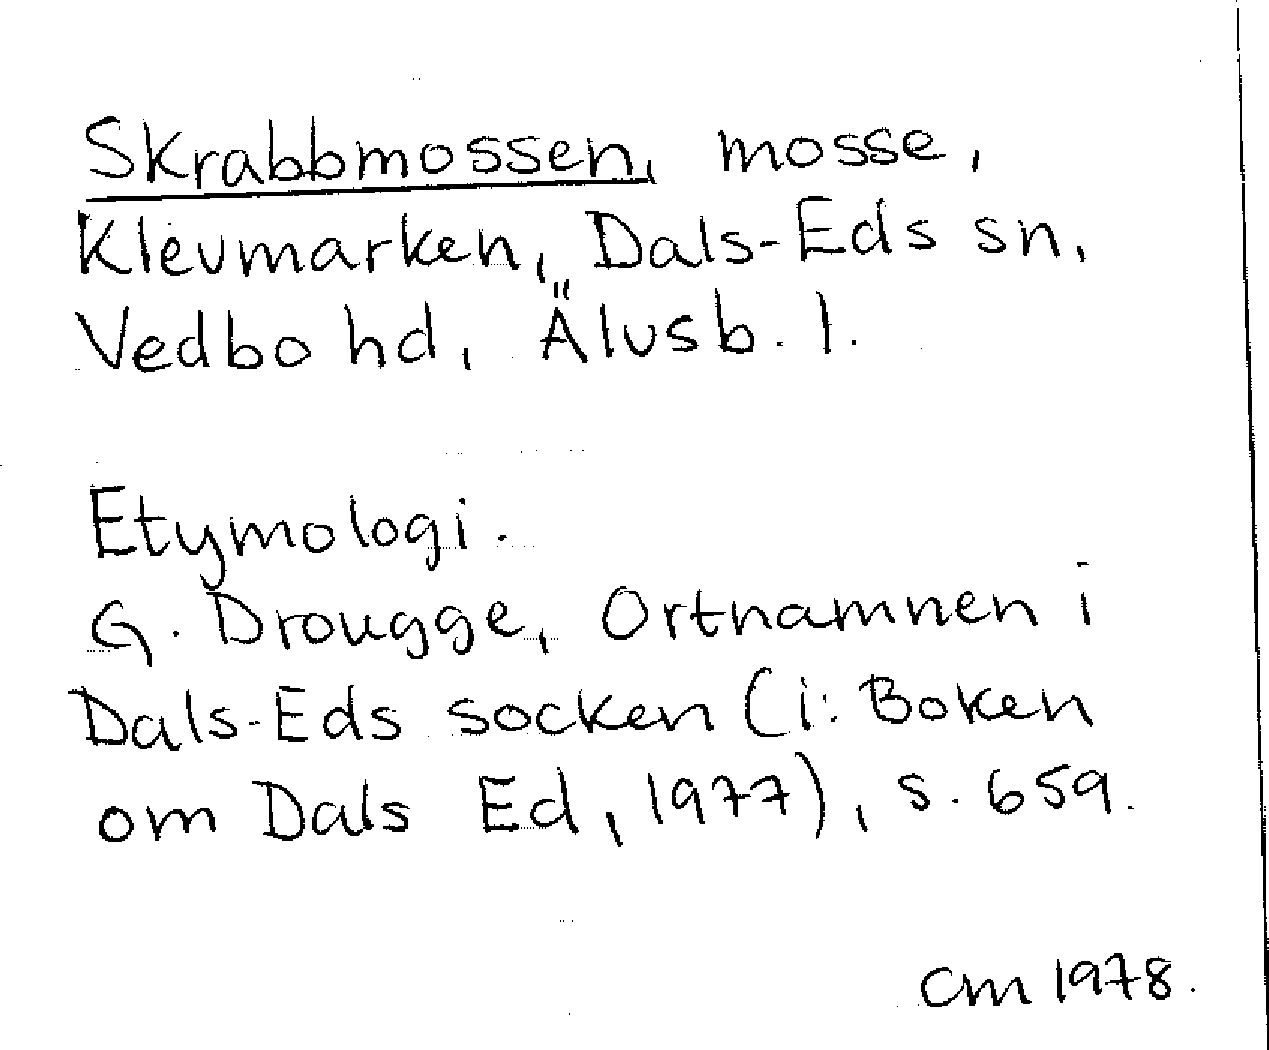 Skrabbmossen, mosse,
Klevmarken, Dals-Eds sn,
Vedbo hd, Älvsb. l.
Etymologi.
G. Drougge, Ortnamnen i
Dals-Eds socken (i: Boken
om Dals Ed, 1977), s. 659.
CM 1978.